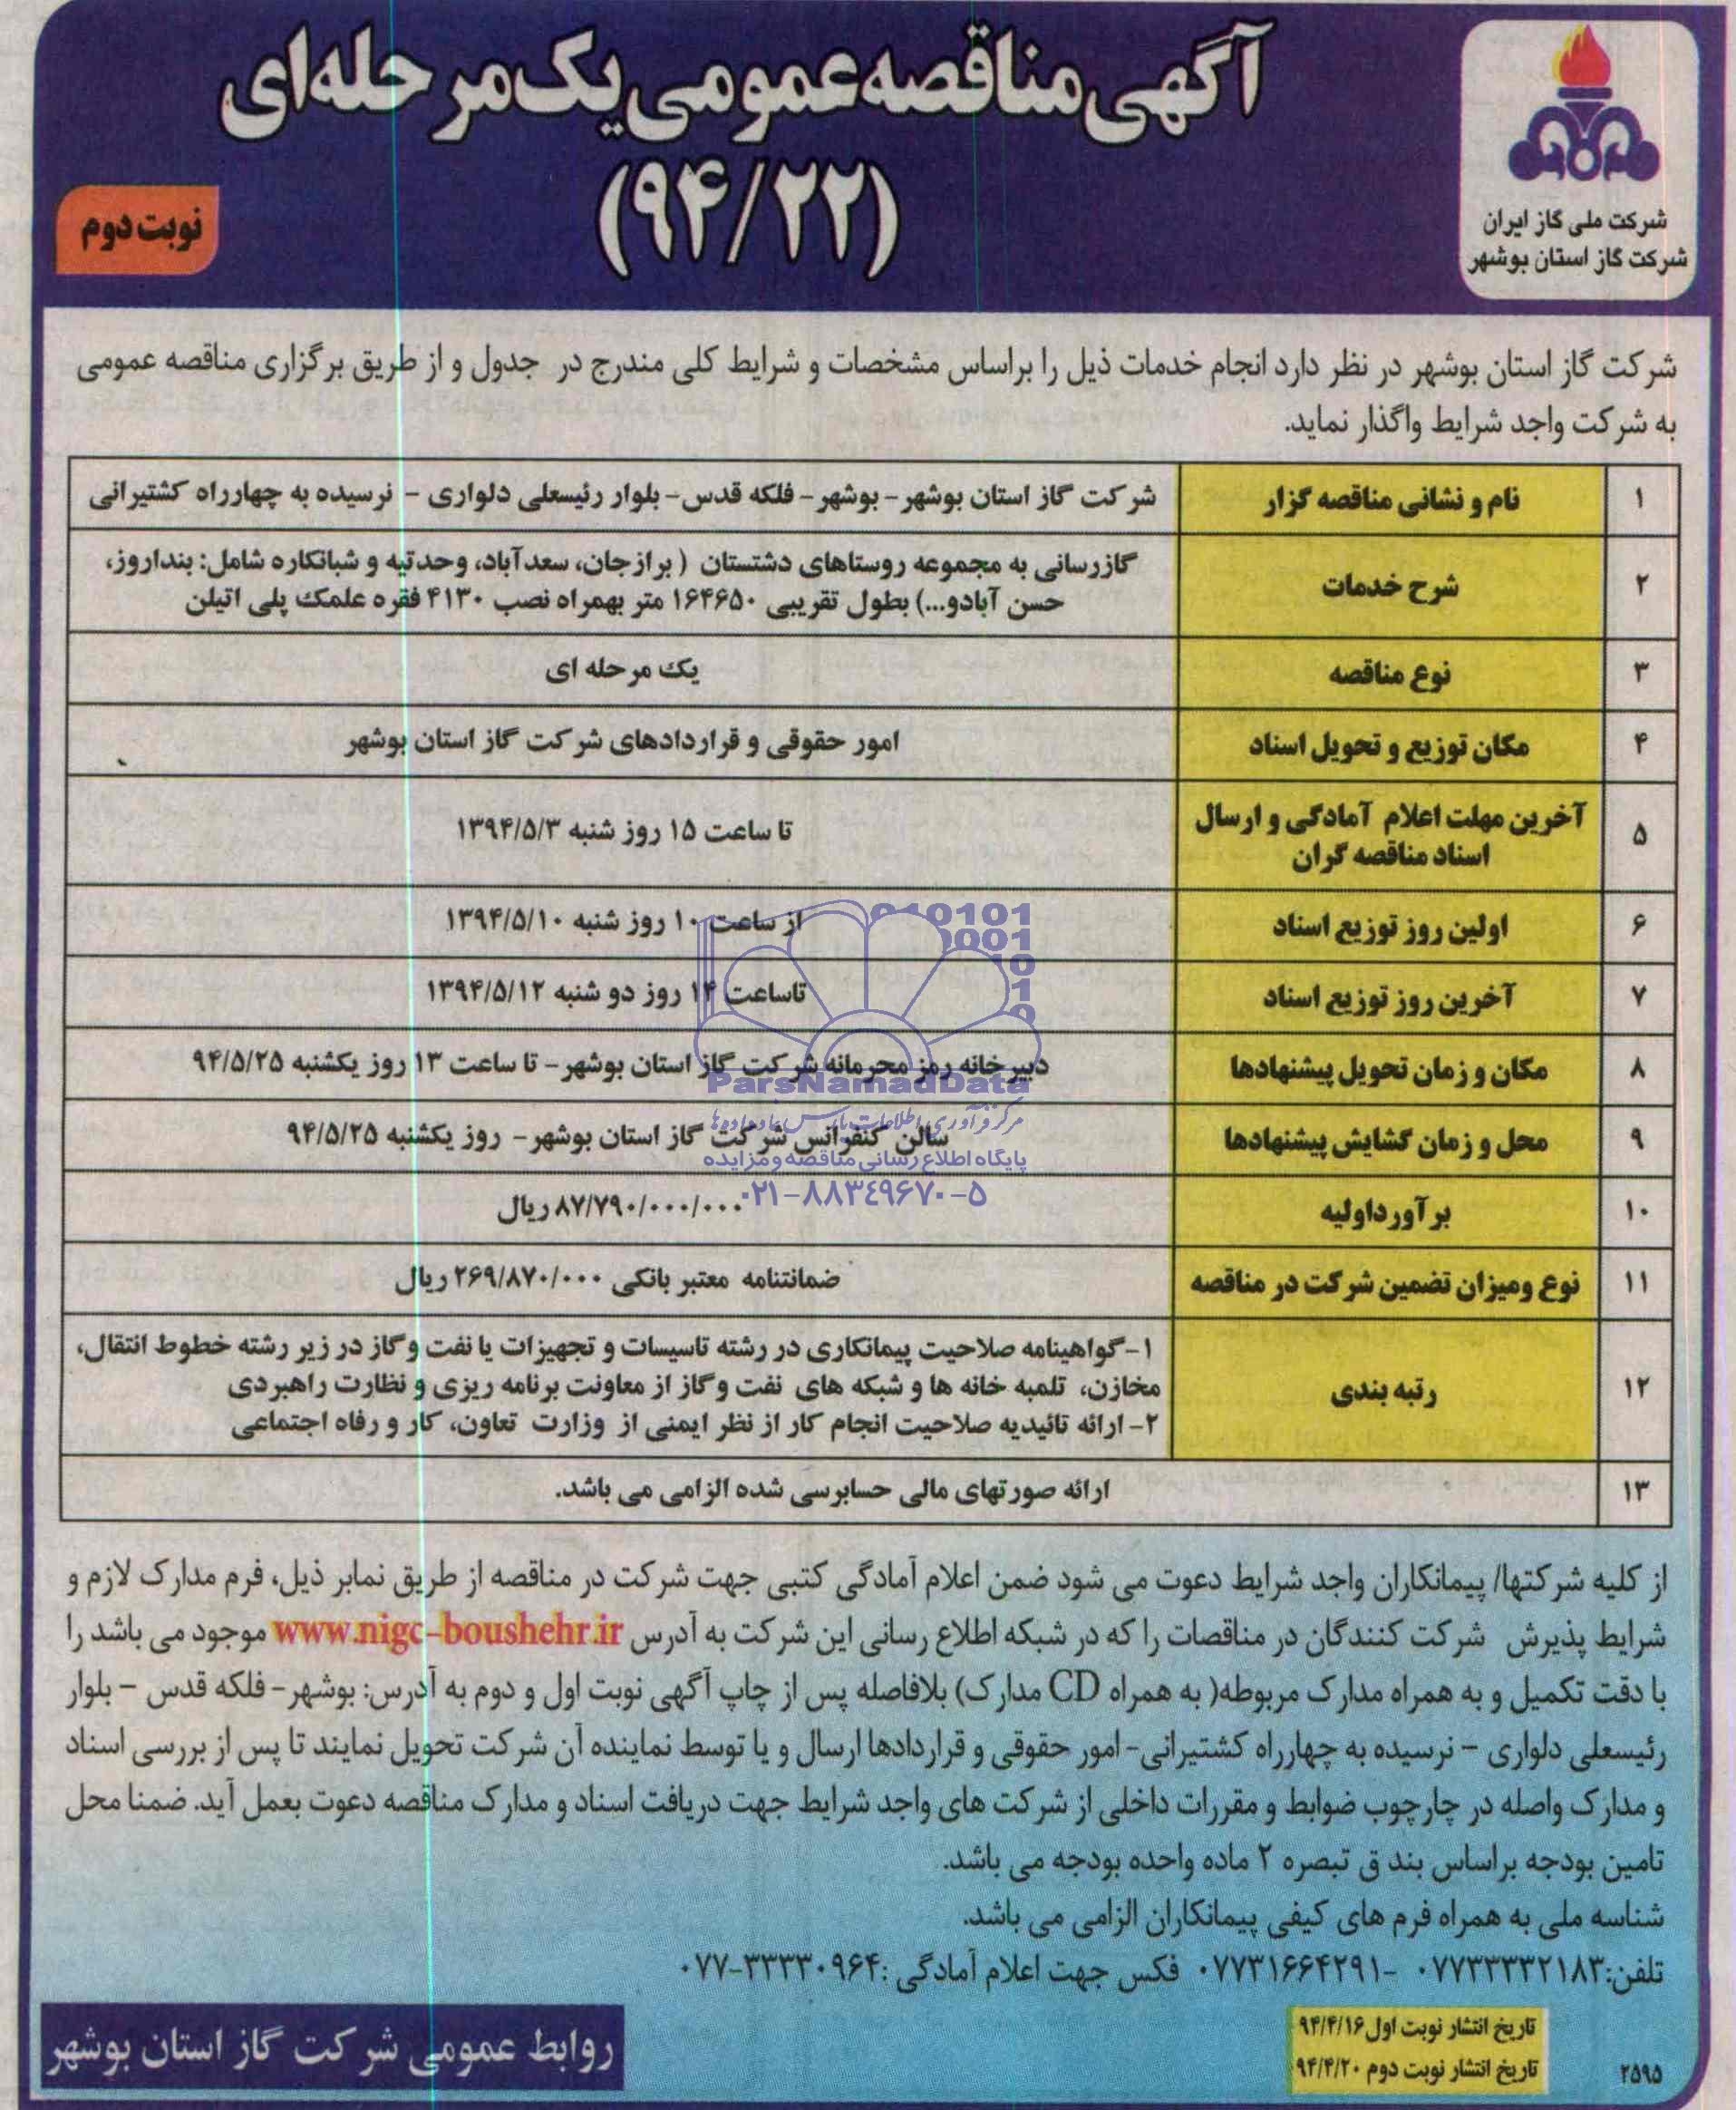 آگهی مناقصه عمومی یک مرحله‌ای
(۹۴/۲۲)
نوبت دوم
شرکت ملی گاز ایران
شرکت گاز استان بوشهر
شرکت گاز استان بوشهر در نظر دارد انجام خدمات ذیل را براساس مشخصات و شرایط کلی مندرج در جدول و از طریق برگزاری مناقصه عمومی
به شرکت واجد شرایط واگذار نماید.
۱ نام و نشانی مناقصه گزار شرکت گاز استان بوشهر- بوشهر- فلکه قدس- بلوار رئیسعلی دلواری - نرسیده به چهارراه کشتیرانی
۲ شرح خدمات گازرسانی به مجموعه روستاهای دشتستان ( برازجان، سعدآباد، وحدتیه و شبانکاره شامل: بنداروز،
حسن آبادو...) بطول تقریبی ۱۶۴۶۵۰ متر بهمراه نصب ۴۱۳۰ فقره علمک پلی اتیلن
۳ نوع مناقصه یک مرحله ای
۴ مکان توزیع و تحویل اسناد امور حقوقی و قراردادهای شرکت گاز استان بوشهر
۵ آخرین مهلت اعلام آمادگی و ارسال
اسناد مناقصه گران تا ساعت ۱۵ روز شنبه ۱۳۹۴/۵/۳
۶ اولین روز توزیع اسناد از ساعت ۱۰ روز شنبه ۱۳۹۴/۵/۱۰
۷ آخرین روز توزیع اسناد تاساعت ۱۴ روز دو شنبه ۱۳۹۴/۵/۱۲
۸ مکان و زمان تحویل پیشنهادها دبیرخانه رمز محرمانه شرکت گاز استان بوشهر- تا ساعت ۱۳ روز یکشنبه ۹۴/۵/۲۵
۹ محل و زمان گشایش پیشنهادها سالن کنفرانس شرکت گاز استان بوشهر- روز یکشنبه ۹۴/۵/۲۵
۱۰ برآورداولیه ۸۷/۷۹۰/۰۰۰/۰۰۰ ریال
۱۱ نوع ومیزان تضمین شرکت در مناقصه ضمانتنامه معتبر بانکی ۲۶۹/۸۷۰/۰۰۰ ریال
۱۲ رتبه بندی ۱-گواهینامه صلاحیت پیمانکاری در رشته تاسیسات و تجهیزات یا نفت و گاز در زیر رشته خطوط انتقال،
مخازن، تلمبه خانه ها و شبکه های نفت و گاز از معاونت برنامه ریزی و نظارت راهبردی
۲- ارائه تائیدیه صلاحیت انجام کار از نظر ایمنی از وزارت تعاون، کار و رفاه اجتماعی
۱۳ ارائه صورتهای مالی حسابرسی شده الزامی می باشد.
010101
0001
10
1
0
ParsNamadData
مرکز فرآوری اطلاعات پارس نماد داده ها
پایگاه اطلاع رسانی مناقصه و مزایده
۰۲۱-۸۸۳۴۹۶۷۰-۵
از کلیه شرکتها/ پیمانکاران واجد شرایط دعوت می شود ضمن اعلام آمادگی کتبی جهت شرکت در مناقصه از طریق نمابر ذیل، فرم مدارک لازم و
شرایط پذیرش شرکت کنندگان در مناقصات را که در شبکه اطلاع رسانی این شرکت به آدرس www.nigc-boushehr.ir موجود می باشد را
با دقت تکمیل و به همراه مدارک مربوطه( به همراه CD مدارک) بلافاصله پس از چاپ آگهی نوبت اول و دوم به آدرس: بوشهر- فلکه قدس - بلوار
رئیسعلی دلواری - نرسیده به چهارراه کشتیرانی- امور حقوقی و قراردادها ارسال و یا توسط نماینده آن شرکت تحویل نمایند تا پس از بررسی اسناد
و مدارک واصله در چارچوب ضوابط و مقررات داخلی از شرکت های واجد شرایط جهت دریافت اسناد و مدارک مناقصه دعوت بعمل آید. ضمنا محل
تامین بودجه براساس بند ق تبصره ۲ ماده واحده بودجه می باشد.
شناسه ملی به همراه فرم های کیفی پیمانکاران الزامی می باشد.
تلفن:۰۷۷۳۳۳۳۲۱۸۳ -۰۷۷۳۱۶۶۴۲۹۱ فکس جهت اعلام آمادگی :۰۷۷-۳۳۳۳۰۹۶۴
تاریخ انتشار نوبت اول ۹۴/۴/۱۶
تاریخ انتشار نوبت دوم ۹۴/۴/۲۰
۲۵۹۵
روابط عمومی شرکت گاز استان بوشهر